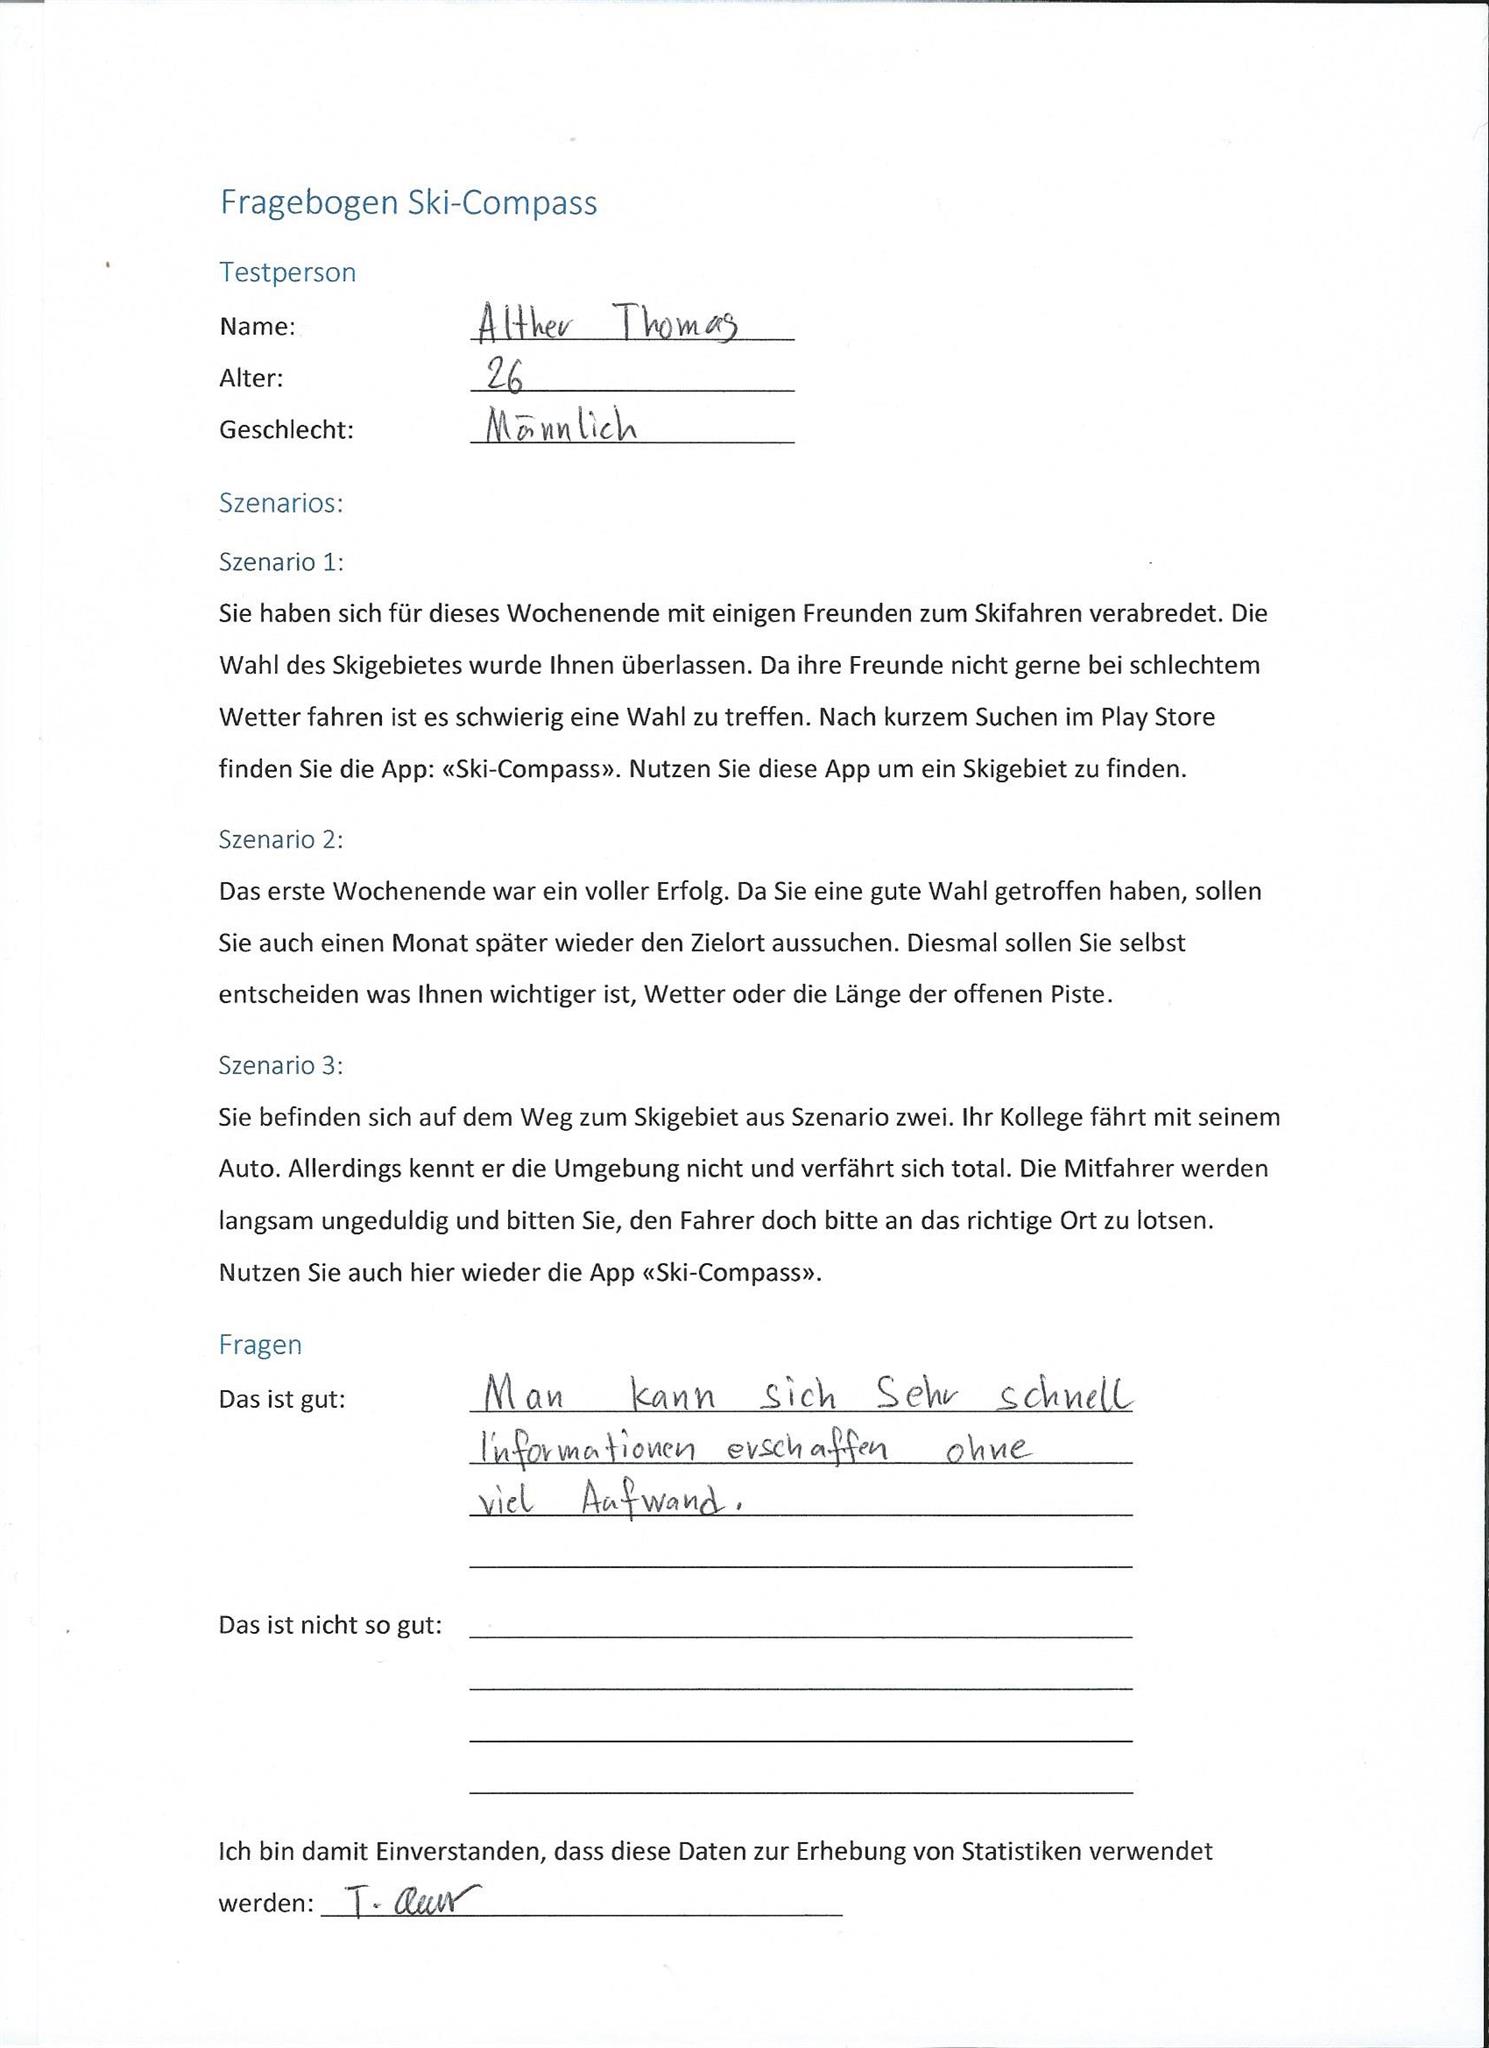 Fragebogen Ski-Compass
Testperson
Name: Alther Thomas
Alter: 26
Geschlecht: Männlich
Szenarios:
Szenario 1:
Sie haben sich für dieses Wochenende mit einigen Freunden zum Skifahren verabredet. Die
Wahl des Skigebietes wurde Ihnen überlassen. Da ihre Freunde nicht gerne bei schlechtem
Wetter fahren ist es schwierig eine Wahl zu treffen. Nach kurzem Suchen im Play Store
finden Sie die App: «Ski-Compass». Nutzen Sie diese App um ein Skigebiet zu finden.
Szenario 2:
Das erste Wochenende war ein voller Erfolg. Da Sie eine gute Wahl getroffen haben, sollen
Sie auch einen Monat später wieder den Zielort aussuchen. Diesmal sollen Sie selbst
entscheiden was Ihnen wichtiger ist, Wetter oder die Länge der offenen Piste.
Szenario 3:
Sie befinden sich auf dem Weg zum Skigebiet aus Szenario zwei. Ihr Kollege fährt mit seinem
Auto. Allerdings kennt er die Umgebung nicht und verfährt sich total. Die Mitfahrer werden
langsam ungeduldig und bitten Sie, den Fahrer doch bitte an das richtige Ort zu lotsen.
Nutzen Sie auch hier wieder die App «Ski-Compass».
Fragen
Das ist gut: Man kann sich Sehr schnell
Informationen erschaffen ohne
viel Aufwand.
Das ist nicht so gut:
Ich bin damit Einverstanden, dass diese Daten zur Erhebung von Statistiken verwendet
werden: T.